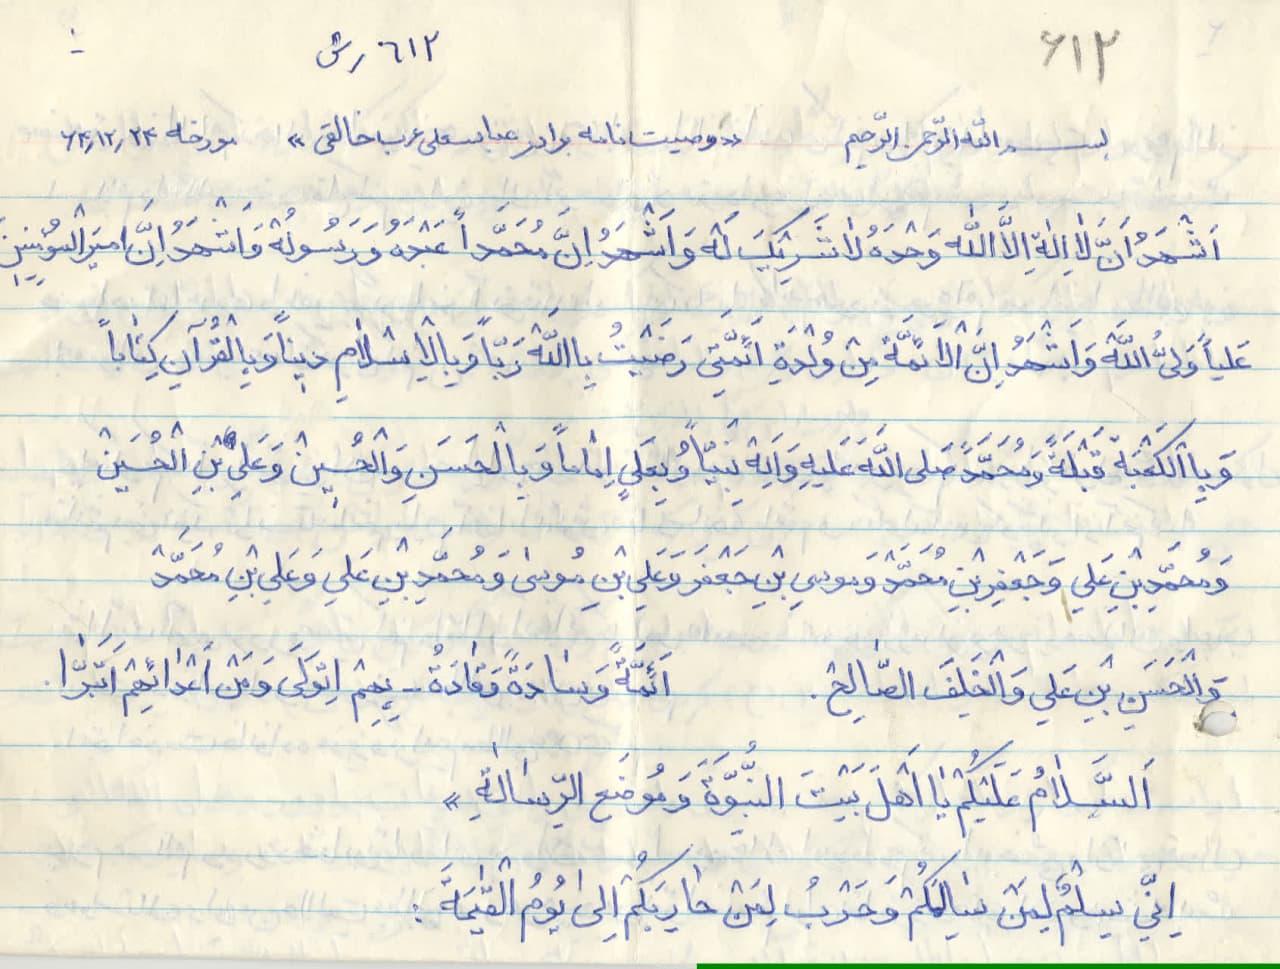 ۶۱۲
۶۱۲ رش
۱
بسم الله الرحمن الرحیم «وصیت نامه برادر عباسعلی عرب خالقی» مورخه ۶۴٫۱۲٫۲۴
اَشْهَدُ اَنَّ لاٰ اِلهَ اِلاَّ اللّٰه وَحْدَهُ لاٰ شَریٖکَ لَه وَ اَشْهَدُ اِنَّ مُحَمَّداً عَبْدَهُ وَ رَسُولُهْ وَ اَشْهَدُ اِنَّ امیرَ المؤمِنینَ
عَلیاً وَلیُّ اللَّهْ وَ اَشْهَدُ اِنَّ الْاَئمَّهْ مِنْ وُلْدِهِ اَئمَّتی رَضیٖتُ بِاللَّهْ رَبّاً وَ بِالْاِسْلاٰمِ دیٖناً وَ بِالْقُرْآنِ کِتٰاباً
وَ بِاالکَعْبَة قَبْلَةً وَ مُحَمَّدً صَلی اللَّه عَلَیهِ وَ اٰلِهْ نَبیّاً وَ بِعَلیٍ اِمٰاماً وَ بِالْحَسَنِ وَالْحُسیٖنْ وَ عَلیِ بْنِ الْحُسَیْنْ
وَ مُحمَّدِ بْنِ عَلی وَ جَعْفِر بْنِ مُحَمَّدْ وَ موسیِ بْنِ جَعْفَرَ وَ عَلیِ بْنِ مُوسیٰ وَ مُحمَّدِ بْنِ عَلی وَ عَلیِ بْنِ مُحَمَّدْ
وَالْحَسَنِ بْنِ عَلی وَ الْخَلِفَ الصّٰالِحْ . اَئمَّةً وَ سٰادَةً وَ قٰادَةً ـ بِهِمْ اِتَّوَلَی وَ مَنْ اَعْدٰائِهِمْ اَتَبَرّٰا .
اَلسَّلاٰمُ عَلَیْکُمْ یٰا اَهْلَ بَیْتَ النُبُّوَّةَ وَ مُوضَع الرّسٰالةِ »
اِنّی سِلْمٌ لِمَنْ سٰالَمَکُمْ وَ حَرْبُ لِمَنْ حٰارِبَکُمْ اِلیٰ یُومُ الْقیٰمَةَ .